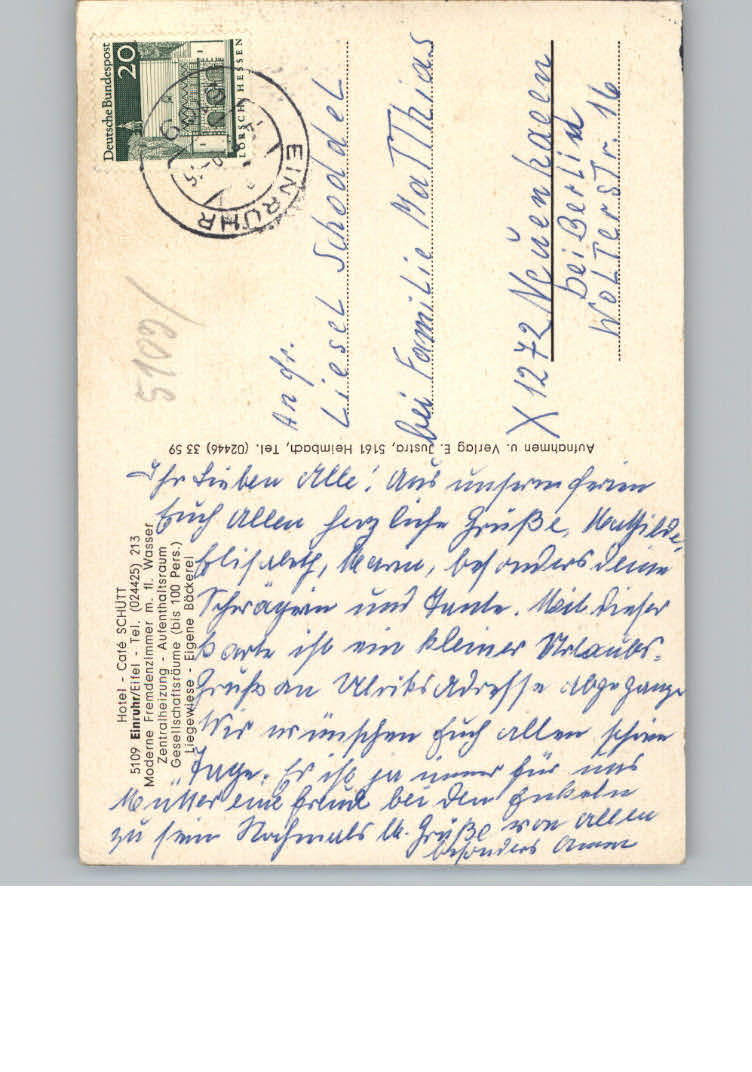 Hotel - Café SCHÜTT
5109 Einruhr/Eifel - Tel. (024425) 213
Moderne Fremdenzimmer m. fl. Wasser
Zentralheizung - Aufenthaltsraum
Gesellschaftsräume (bis 100 Pers.)
Liegewiese - Eigene Bäckerei
Ihr Lieben Alle! Aus unserm Ferien
Euch Allen herzliche Grüße, Mathilde,
Elisabeth, besonders deine
Schwägerin und Tante. Mit dieser
Karte ist ein kleiner Urlaubs-
Gruß an Ulriks Adresse abgegangen
Wir wünschen Euch allen schöne
Tage. Es ist ja immer für uns
Mütter eine Freude bei den Enkeln
zu sein Nochmals Grüße von allen
besonders
Aufnahmen u. Verlag E. Justra, 5161 Heimbach, Tel. (02446) 33 59
Deutsche Bundespost
20
LORSCH / HESSEN
EINRUHR
5109
An Fr.
Liesel Schoddel
bei Familie Matthias
X 1272 Neuenhagen
bei Berlin
Wolterstr. 16